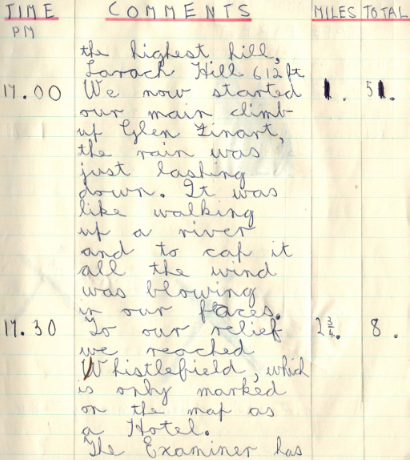 TIME COMMENTS MILES TOTAL
PM
the highest hill,
Larach Hill 612 ft
17.00 We now started 1. 51.
our main climb
up Glen Finart,
the rain was
just lashing
down. It was
like walking
up a river
and to cap it
all the wind
was blowing
in our faces.
17.30 To our relief 2¾. 8.
we reached
Whistlefield, which
is only marked
on the map as
a Hotel.
The Examiner has